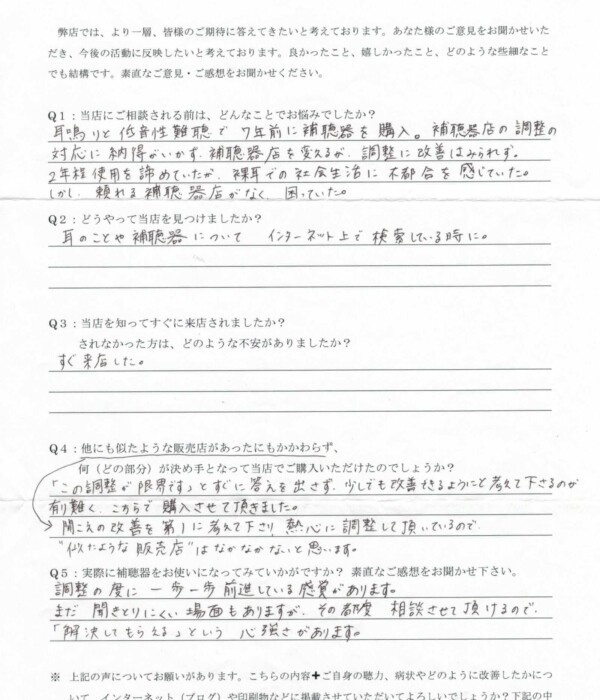 弊店では、より一層、皆様のご期待に答えてきたいと考えております。あなた様のご意見をお聞かせいた
だき、今後の活動に反映したいと考えております。良かったこと、嬉しかったこと、どのような些細なこと
でも結構です。素直なご意見・ご感想をお聞かせください。
Q1：当店にご相談される前は、どんなことでお悩みでしたか？
耳鳴りと低音性難聴で 7年前に補聴器を購入。補聴器店の調整の
対応に納得がいかず、補聴器店を変えるが、調整に改善はみられず。
2年程使用を諦めていたが、裸耳での社会生活に不都合を感じていた。
しかし、頼れる補聴器店がなく、困っていた。
Q2：どうやって当店を見つけましたか？
耳のことや補聴器について インターネット上で検索している時に。
Q3：当店を知ってすぐに来店されましたか？
されなかった方は、どのような不安がありましたか？
すぐ来店した。
Q4：他にも似たような販売店があったにもかかわらず、
何（どの部分）が決め手となって当店でご購入いただけたのでしょうか？
「この調整が限界です」とすぐに答えを出さず、少しでも改善できるようにと考えて下さるのが
有り難く、こちらで購入させて頂きました。
聞こえの改善を第1に考えて下さり、熱心に調整して頂いているので、
“似たような販売店”はなかなかないと思います。
Q5：実際に補聴器をお使いになってみていかがですか？ 素直なご感想をお聞かせ下さい。
調整の度に一歩一歩前進している感覚があります。
まだ聞きとりにくい場面もありますが、その都度 相談させて頂けるので、
「解決してもらえる」という 心強さがあります。
※ 上記の声についてお願いがあります。こちらの内容＋ご自身の聴力、病状やどのように改善したかにつ
いて、インターネット（ブログ）や印刷物などに掲載させていただいてよろしいでしょうか？下記の中